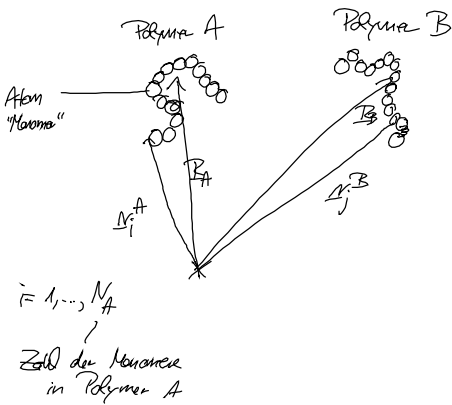 Polymer A
Polymer B
Atom
"Monomer"
R_A
R_B
r_i^A
r_j^B
i = 1, ..., N_A
Zahl der Monomere
in Polymer A